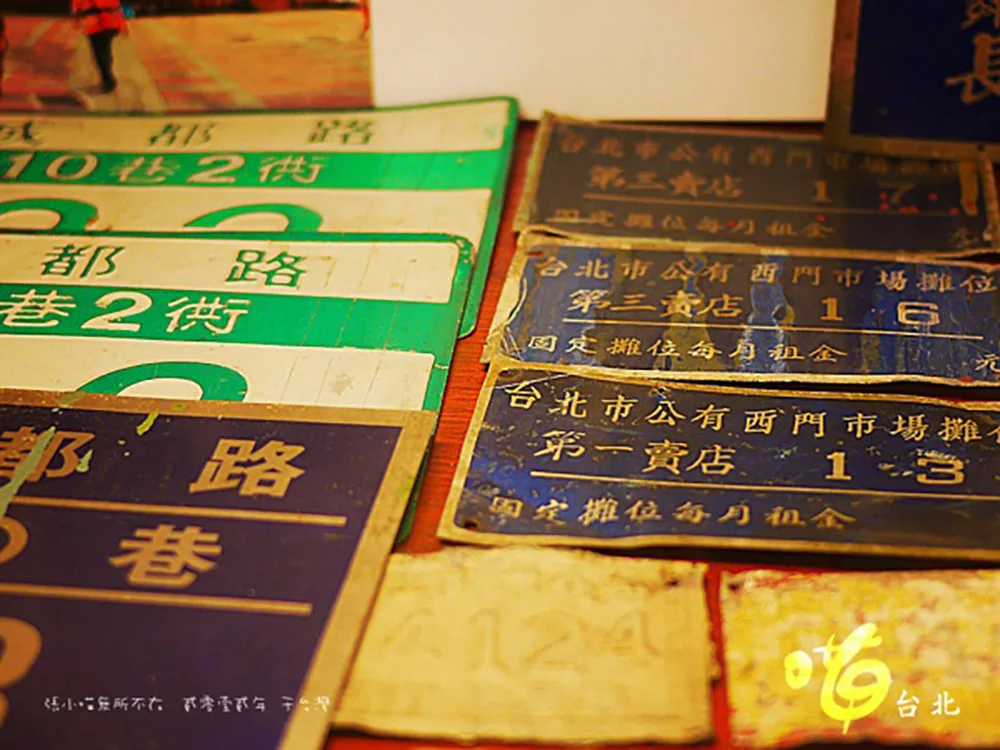 都 路
10巷2衖
都 路
巷2衖
都 路
巷
台北市公有西門市場
第三賣店 1 7
固定攤位每月租金
台北市公有西門市場攤位
第三賣店 1 6
固定攤位每月租金 元
台北市公有西門市場攤
第一賣店 1 3
固定攤位每月租金
124
長
張小喵無所不在 貳零壹貳年 于台灣
喵
台北